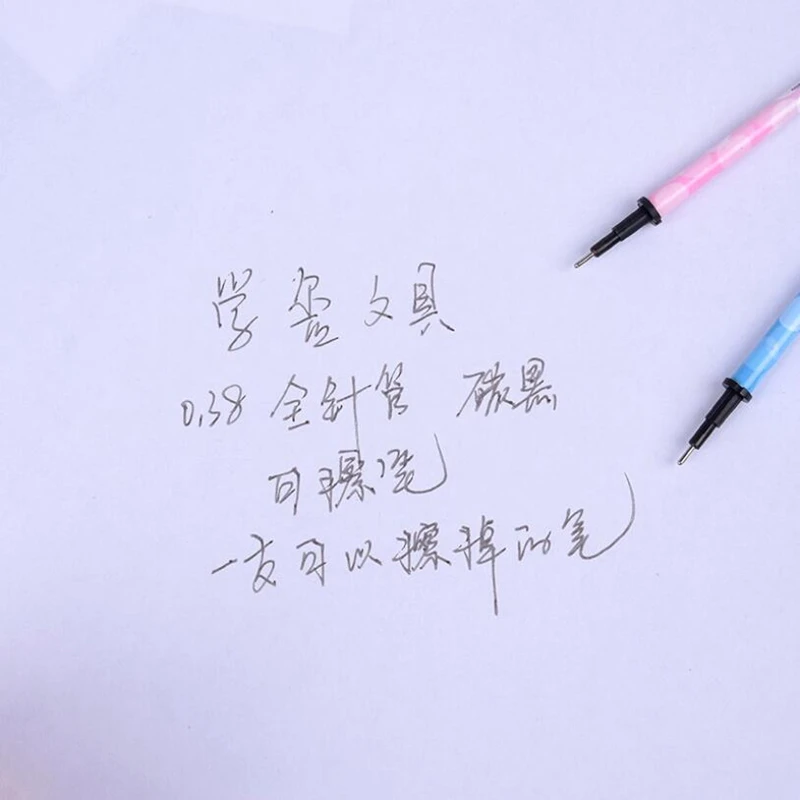 学壹文具
0.38 全针管 碳黑
可擦笔
一支可以擦掉的笔